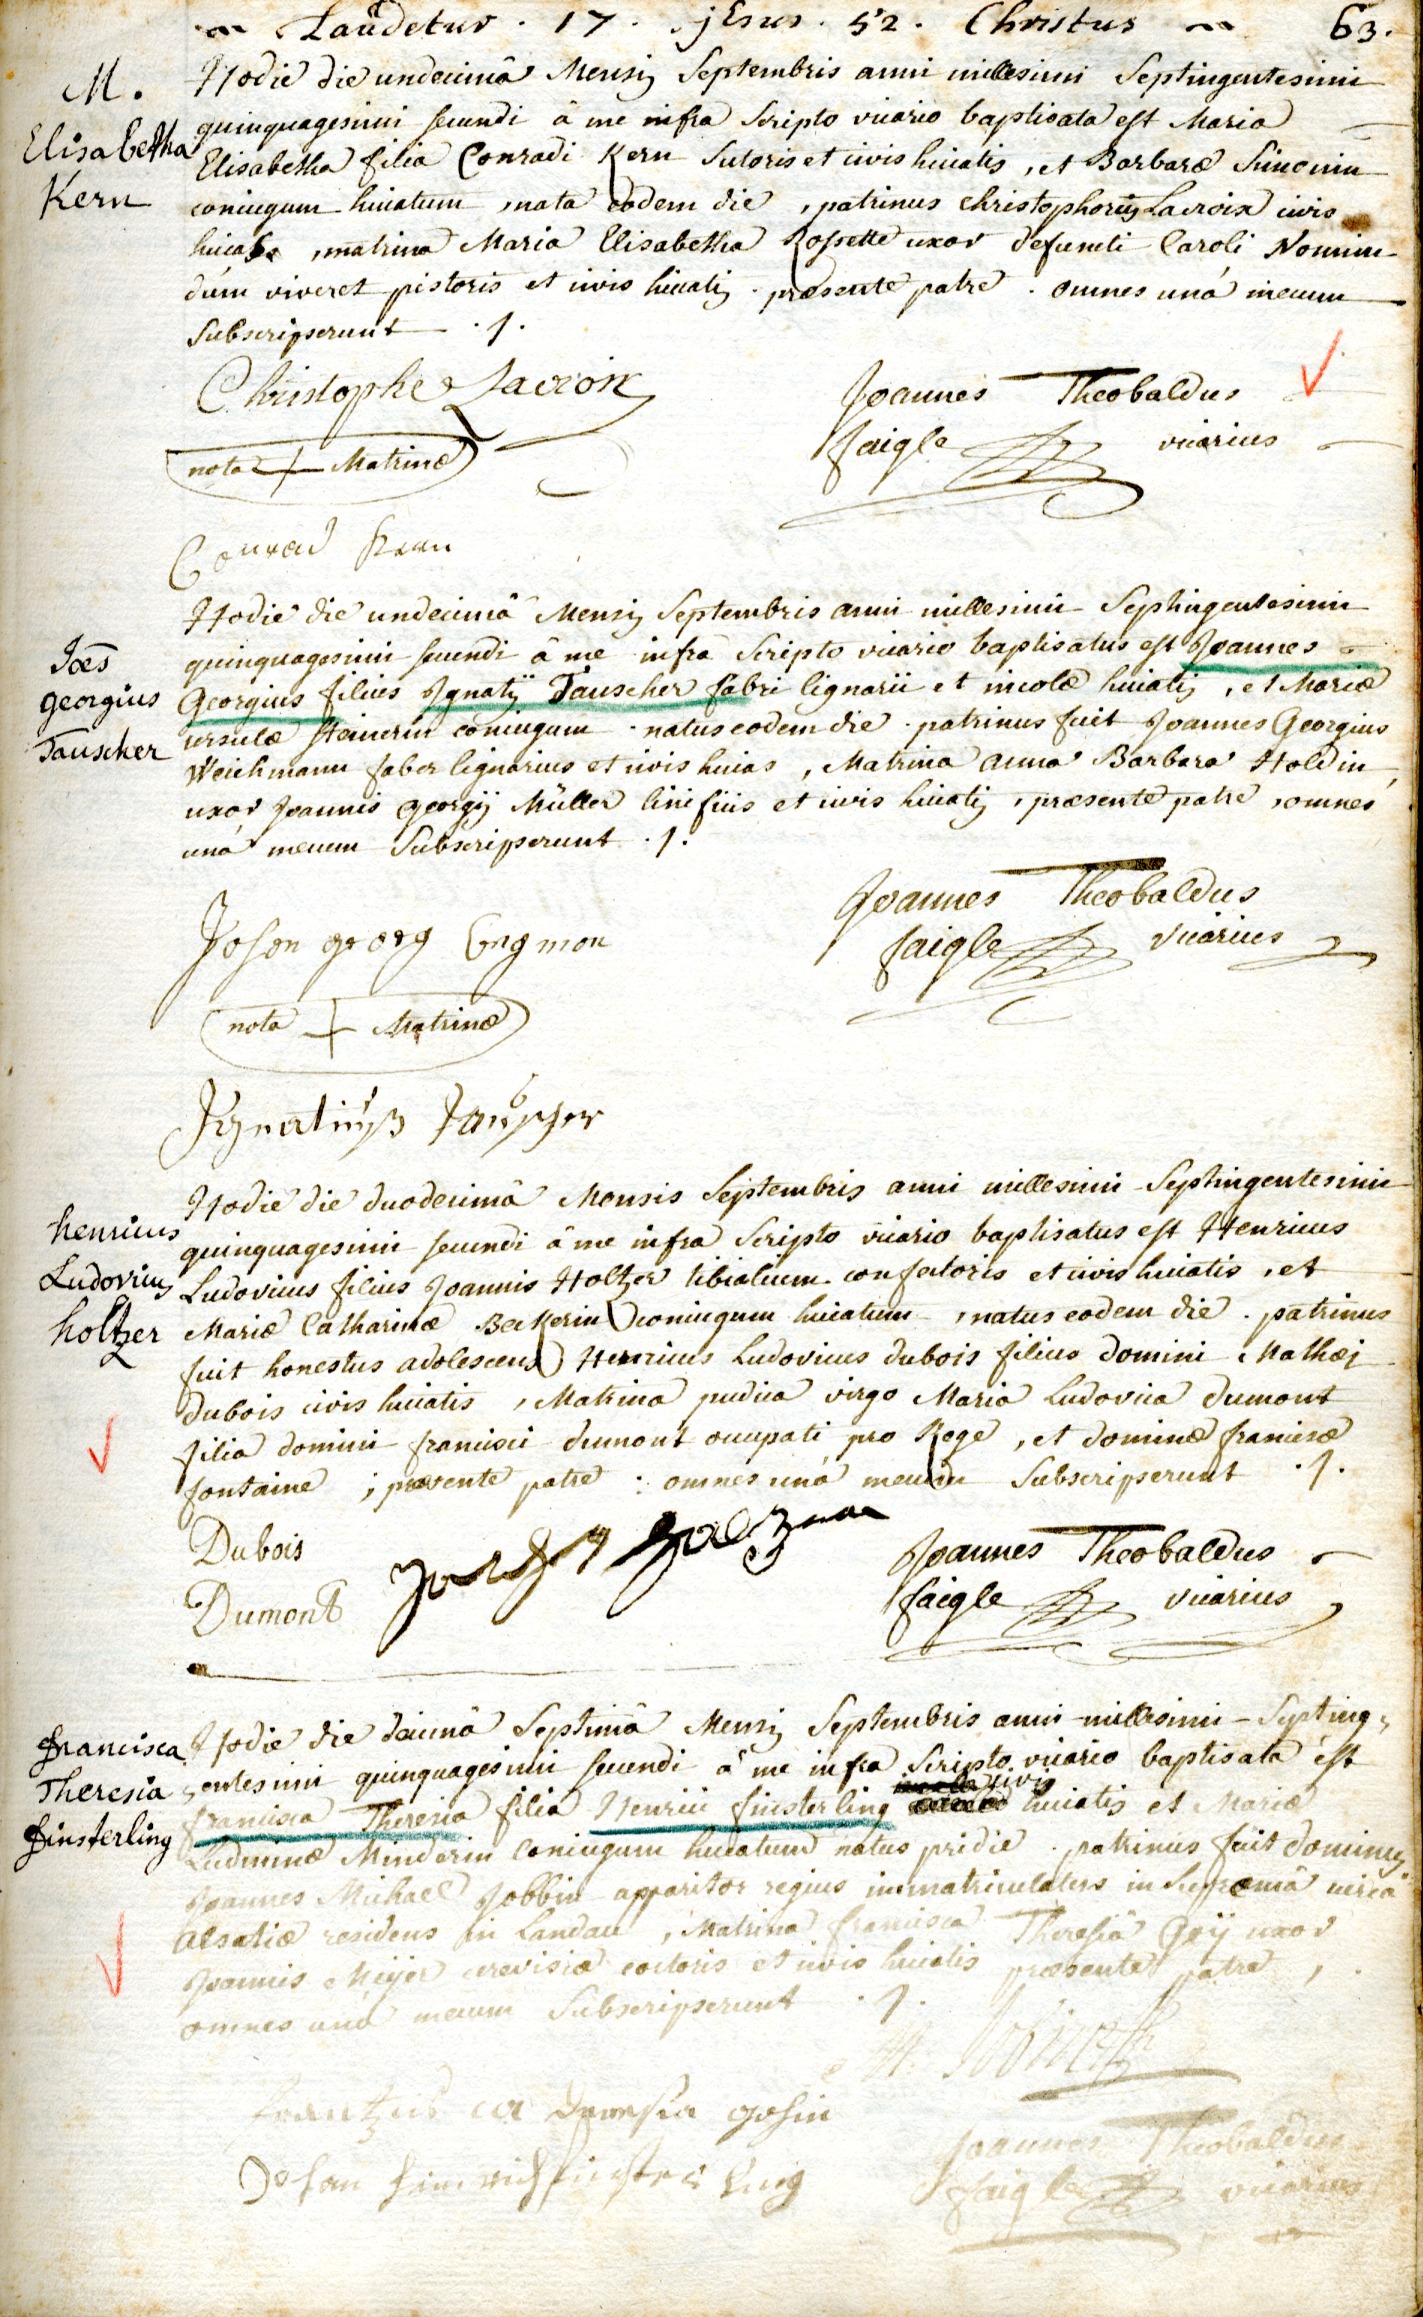 Laudetur . 17 . jEsus . 52 . Christus 63.
M.
Elisabetha
Kern
Hodie die undecimâ Mensis Septembris anni millesimi Septingentesimi
quinquagesimi secundi â me infra Scripto vicario baptisata est Maria
Elisabetha filia Conradi Kern Sutoris et civis huiatis, et Barbaræ Simonin
coniugum huiatum, nata eodem die, patrinus Christophorus Lacroix civis
huias, matrina Maria Elisabetha Rossette uxor defuncti Caroli
dum viveret pistoris et civis huiatis. præsente patre. omnes unâ mecum
Subscripserunt ./.
Christophe Lacroix
Joannes Theobaldus
faigle vicarius
nota + Matrinæ
Conrad Kern
Joẽs
georgius
Tauscher
Hodie die undecimâ Mensis Septembris anni millesimi Septingentesimi
quinquagesimi secundi â me infra Scripto vicario baptisatus est Joannes
Georgius filius Ignatij Tauscher fabri lignarii et incolæ huiatis, et Mariæ
ursulæ Steinerin coniugum. natus eodem die. patrinus fuit Joannes Georgius
Weichmann faber lignarius et civis huias, Matrina Anna Barbara Holdin
uxor Joannis georgij Müller linificis et civis huiatis, præsente patre, omnes
unâ mecum Subscripserunt ./.
Joannes Theobaldus
faigle vicarius
Johan georg
nota + Matrinæ
Ignatius Tauscher
henricus
Ludovicus
holtzer
Hodie die duodecimâ Mensis Septembris anni millesimi Septingentesimi
quinquagesimi secundi â me infra Scripto vicario baptisatus est Henricus
Ludovicus filius Joannis Holtzer tibialium confectoris et civis huiatis, et
Mariæ Catharinæ Beckerin coniugum huiatum, natus eodem die. patrinus
fuit honestus adolescens Henricus Ludovicus dubois filius domini Mathæi
dubois civis huiatis, Matrina pudica virgo Maria Ludovica dumont
filia domini francisci dumont occupati pro Rege, et dominæ franciscæ
fontaine; præsente patre: omnes unâ mecum Subscripserunt ./.
Dubois
Dumont
Joannes Theobaldus
faigle vicarius
francisca
Theresia
finsterling
Hodie die decimâ Septimâ Mensis Septembris anni millesimi Septing
entesimi quinquagesimi secundi â me infra Scripto vicario baptisata est
francisca Theresia filia Henrici finsterling civis huiatis et Mariæ
Ludminæ Minderin Coniugum huiatum natus pridie. patrinus fuit dominus
Joannes Michael Jobbin apparitor regius immatriculatus in Supremâ curiâ
Alsatiæ residens in Landau, Matrina francisca Theresia Goij uxor
Joannis Meijer cerevisiæ coctoris et civis huiatis præsente patre,
omnes unâ mecum Subscripserunt ./.
Johan finsterling
Joannes Theobaldus
faigle vicarius